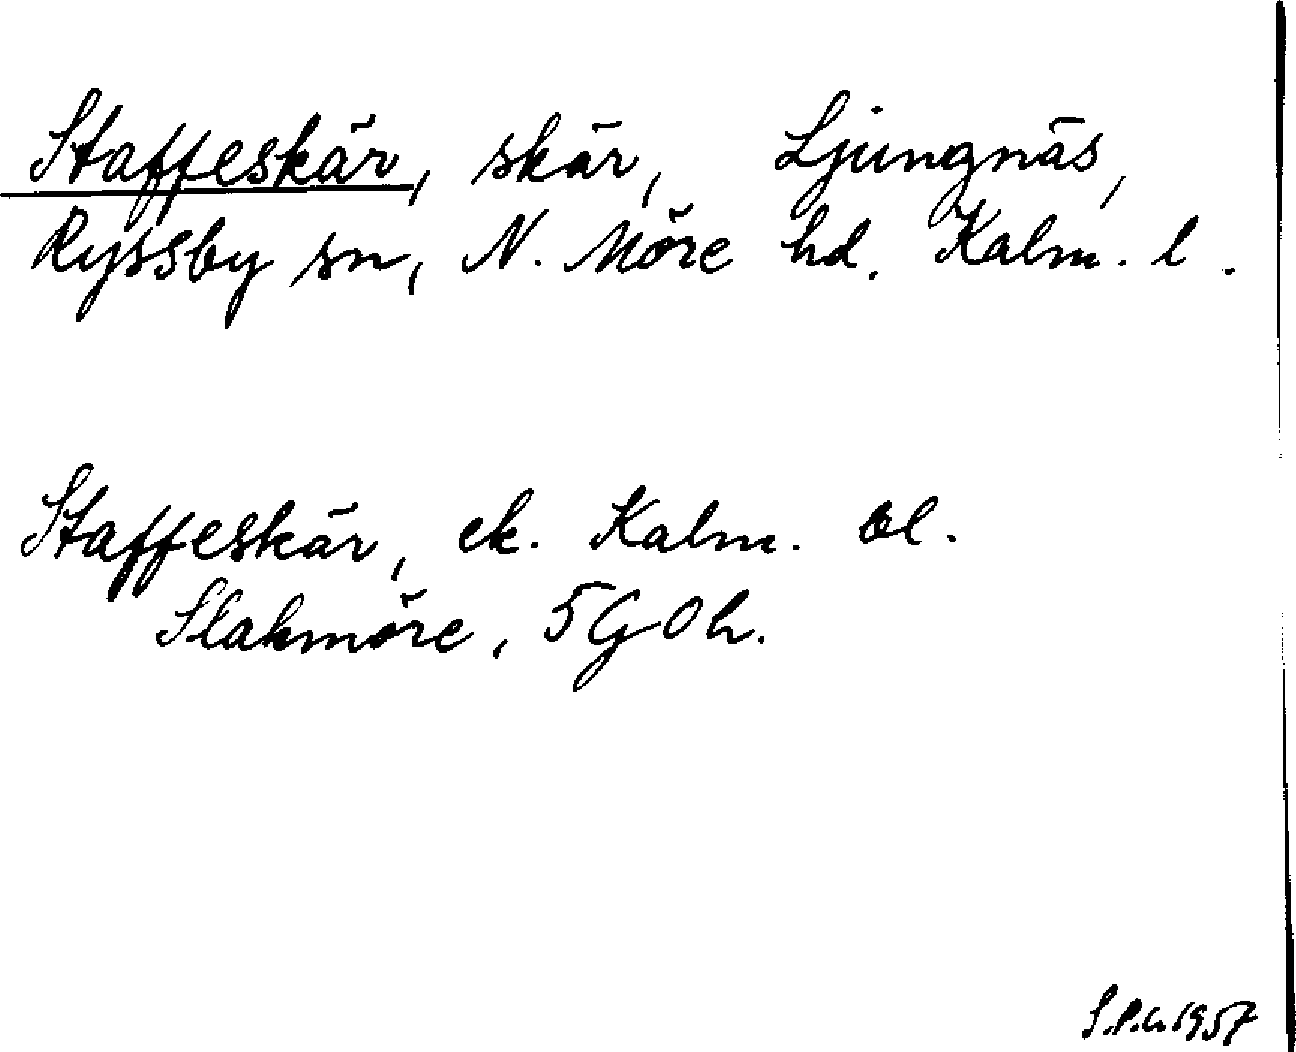 Staffeskär, skär, Ljungnäs,
Ryssby sn, N. Möre hd. Kalm. l.
Staffeskär, ek. Kalm. bl.
Slakmöre, 5GOh.
1957